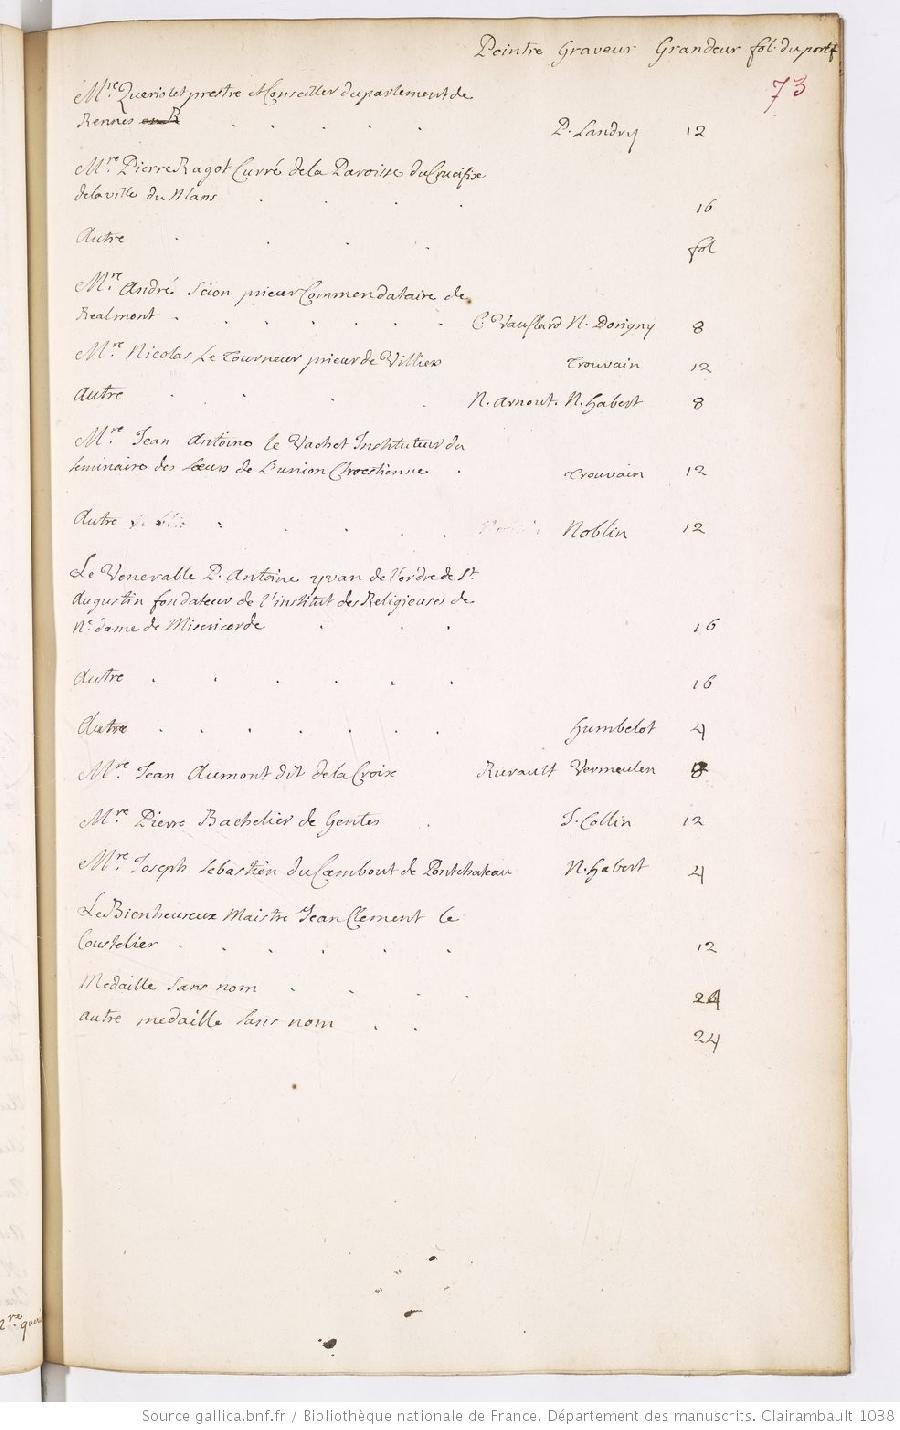 Peintre Graveur Grandeur fol. du portf
73
Mre Queriolet prestre et Conseiller du parlement de
Rennes P. Landry 12
Mre Pierre Ragot Curré de la Paroisse du Crucifix
de la ville du Mans 16
Autre fol
Mre André Scion prieur Commendataire de
Realmont C Vauflard N. Dorigny 8
Mre Nicolas Le Tourneur prieur de Villiers Trouvain 12
Autre N. Arnout. N. habert 8
Mre Jean Antoine le Vachet Instituteur du
Seminaire des Soeurs de L'union Chrestienne Trouvain 12
Autre Noblin 12
Le Venerable P. Antoine yvan de l'ordre de St.
Augustin fondateur de l'institut des Religieuses de
Ne. dame de Misericorde 16
Autre 16
Autre humbelot 4
Mre. Jean Aumont dit de la Croix Ruvault Vermeulen 8
Mre Pierre Bachelier de Gentes J. Collin 12
Mre. Joseph Sebastien du Cambout de Pontchateau N. habert 4
Le Bienheureux Maistre Jean Clement le
Coustelier 12
Medaille sans nom 24
autre medaille sans nom 24
Source gallica.bnf.fr / Bibliothèque nationale de France. Département des manuscrits. Clairambault 1038